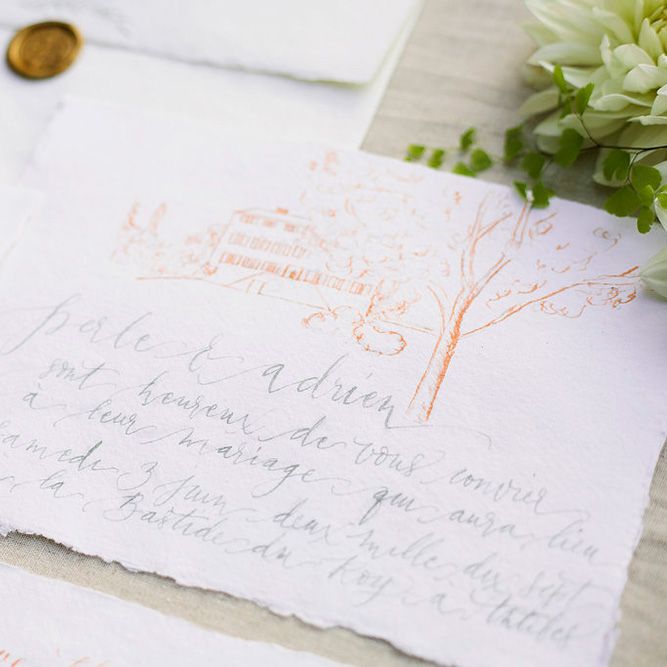 perle & adrien
sont heureux de vous convier
à leur mariage qui aura lieu
samedi 3 juin deux mille dix sept
la Bastide du Roy à antibes